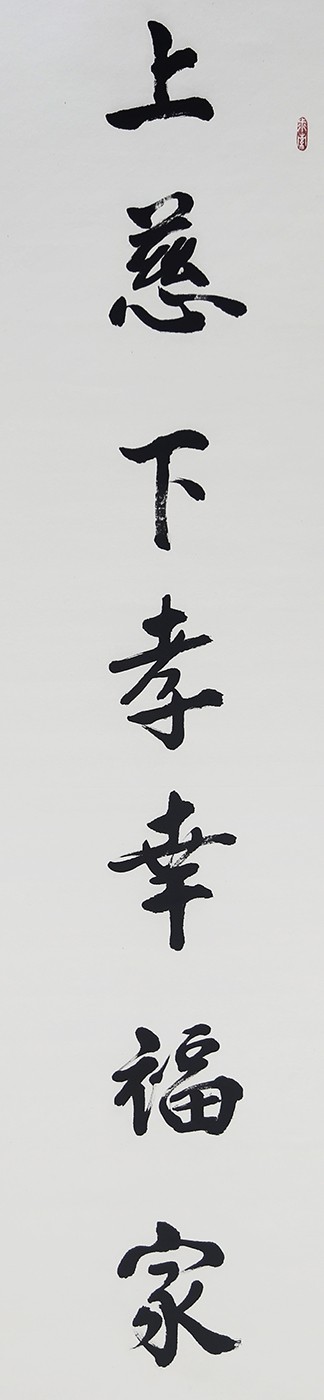 上慈下孝幸福家